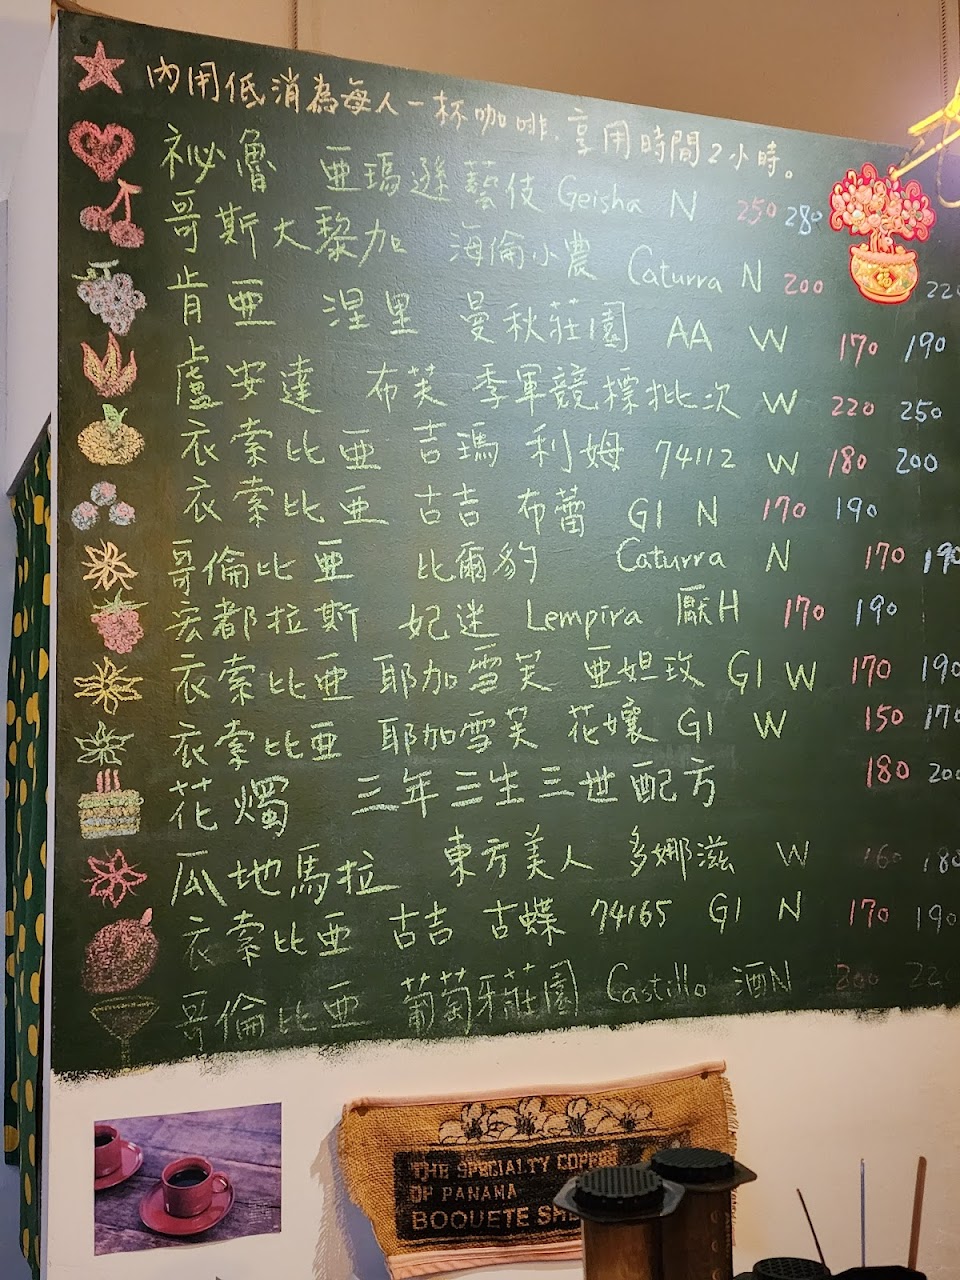 內用低消為每人一杯咖啡，享用時間2小時。
祕魯 亞瑪遜藝伎 Geisha N 250 280
哥斯大黎加 海倫小農 Caturra N 200 220
肯亞 涅里 曼秋莊園 AA W 170 190
盧安達 布芙 季軍競標批次 W 220 250
衣索比亞 吉瑪 利姆 74112 W 180 200
衣索比亞 古吉 布蕾 G1 N 170 190
哥倫比亞 比爾豹 Caturra N 170 190
宏都拉斯 妃迷 Lempira 厭H 170 190
衣索比亞 耶加雪芙 亞妲玫 G1 W 170 190
衣索比亞 耶加雪芙 花孃 G1 W 150 170
花燭 三年三生三世配方 180 200
瓜地馬拉 東方美人 多娜滋 W 160 180
衣索比亞 古吉 古蝶 74165 G1 N 170 190
哥倫比亞 葡萄牙莊園 Castillo 酒N 200 220
THE SPECIALTY COFFEE
OF PANAMA
BOQUETE